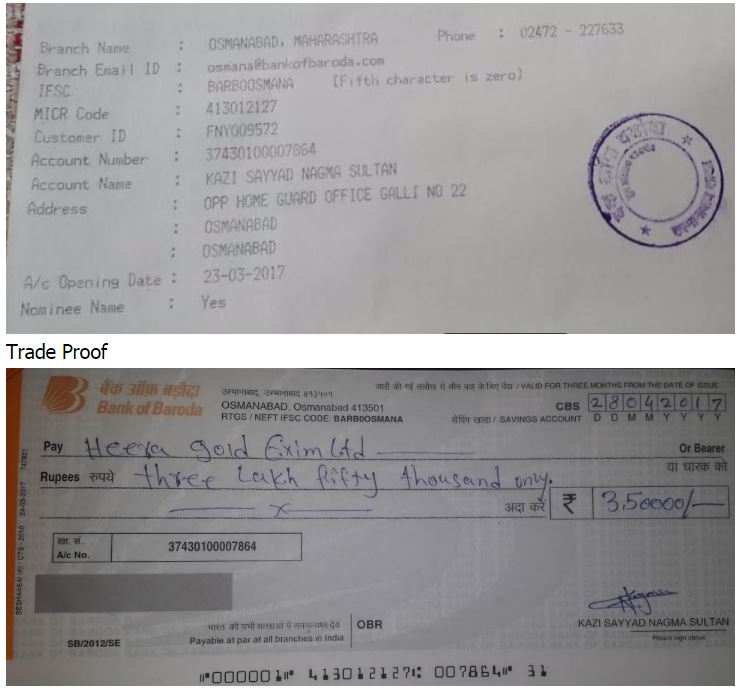 Branch Name : OSMANABAD, MAHARASHTRA Phone : 02472 - 227633
Branch Email ID : osmana@bankofbaroda.com
IFSC : BARB0OSMANA [Fifth character is zero]
MICR Code : 413012127
Customer ID : FNY009572
Account Number : 37430100007864
Account Name : KAZI SAYYAD NAGMA SULTAN
Address : OPP HOME GUARD OFFICE GALLI NO 22
: OSMANABAD
: OSMANABAD
A/c Opening Date : 23-03-2017
Nominee Name : Yes
Trade Proof
बैंक ऑफ़ बड़ौदा
Bank of Baroda
उस्मानाबाद, उस्मानाबाद ४१३५०१
OSMANABAD, Osmanabad 413501
RTGS / NEFT IFSC CODE: BARB0OSMANA
जारी की गई तारीख से तीन माह के लिए वैध / VALID FOR THREE MONTHS FROM THE DATE OF ISSUE
CBS 28042017
सेविंग खाता / SAVINGS ACCOUNT D D M M Y Y Y Y
Pay Heera gold Exim Ltd Or Bearer
या धारक को
Rupees रुपये three Lakh fifty thousand only.
अदा करें ₹ 350000/-
खा. सं.
A/c No. 37430100007864
KAZI SAYYAD NAGMA SULTAN
Please sign above
भारत की सभी शाखाओं में सममूल्यपर देय
SB/2012/SE Payable at par at all branches in India OBR
⑈000001⑈ 413012127⑆ 007864⑈ 31